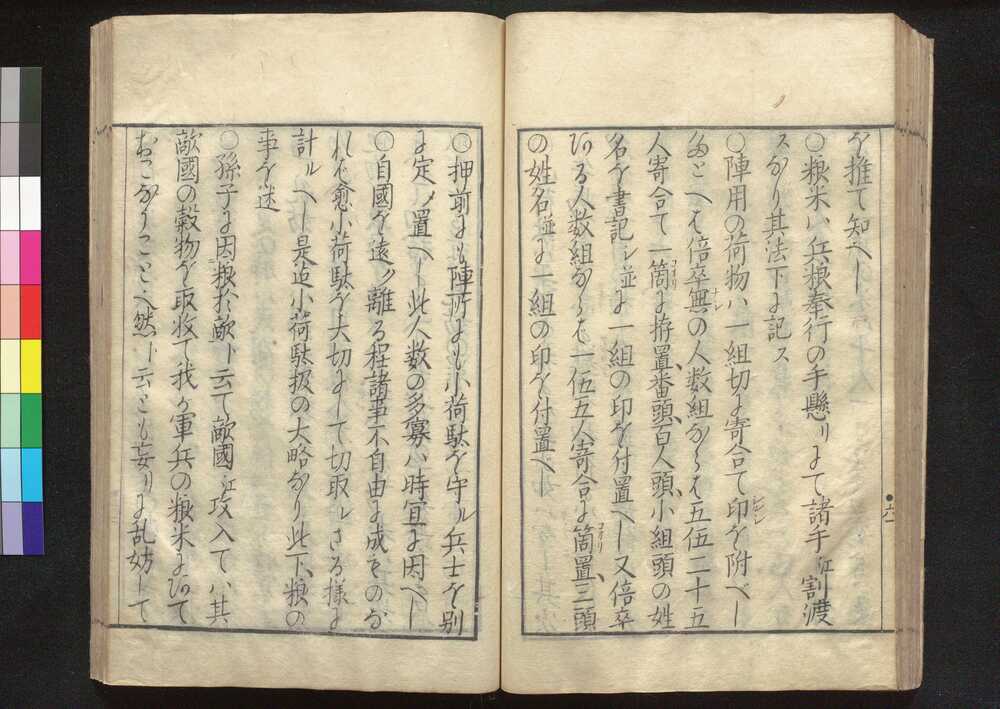 を推て知へし
〇粮米ハ兵粮奉行の手懸りにて諸手江割渡
スなり其法下に記ス
〇陣用の荷物ハ一組切に寄合て印を附べし
たとへは倍卒無の人数組ならは五伍二十五
人寄合て一箇に拵置番頭百人頭小組頭の姓
名を書記シ並に一組の印を付置へし又倍卒
ある人数組ならは一伍五人寄合に箇置三頭
の姓名並に一組の印を付置へし
〇押前にも陣所にも小荷駄を守ル兵士を別
に定メ置へし此人数の多寡ハ時宜に因へし
〇自國を遠ク離る程諸事不自由に成ものな
れは愈小荷駄を大切にして切取レさる様に
計ルへし是迄小荷駄扱の大略なり此下粮の
事を述
〇孫子に因粮於敵ト云て敵國江攻入てハ其
敵國の穀物を取收て我か軍兵の粮米にあて
おこなりことと入然ト云とも妄りに乱妨して